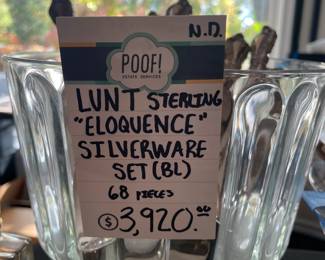 N.D.
POOF!
ESTATE SERVICES
LUNT STERLING
"ELOQUENCE"
SILVERWARE
SET (BL)
68 PIECES
$3,920.00